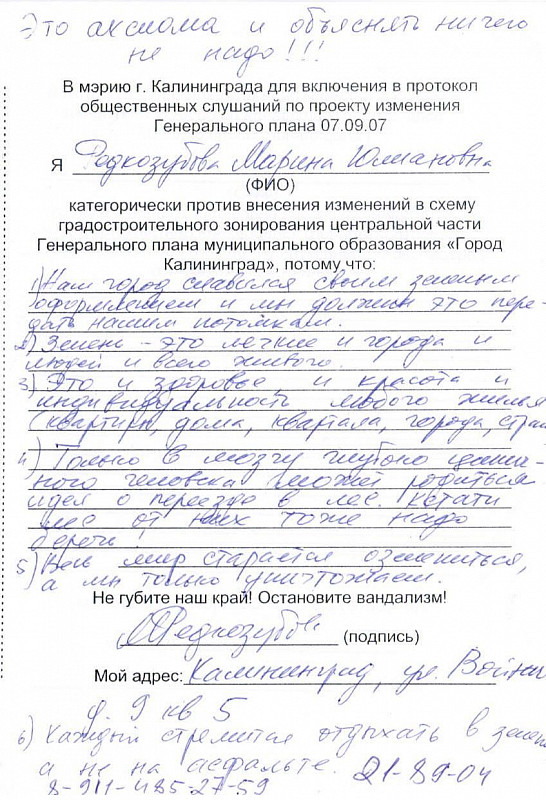 Это аксиома и объяснять ничего
не надо!!!
В мэрию г. Калининграда для включения в протокол
общественных слушаний по проекту изменения
Генерального плана 07.09.07
Я Редкозубова Марина Юлиановна
(ФИО)
категорически против внесения изменений в схему
градостроительного зонирования центральной части
Генерального плана муниципального образования «Город
Калининград», потому что:
1) Наш город славился своим зеленым
оформлением и мы должны это пере-
дать нашим потомкам.
2) Зелень - это легкие и города и
людей и всего живого.
3) Это и здоровье и красота и
индивидуальность любого жилья
(квартиры, дома, квартала, города, стран
4) Только в мозгу глубоко цинич-
ного человека может родиться
идея о переезде в лес. Кстати
лес от них тоже надо
беречь!
5) Весь мир старается озелениться,
а мы только уничтожаем.
Не губите наш край! Остановите вандализм!
МРедкозубова (подпись)
Мой адрес: Калининград, ул.
д. 9 кв 5
6) Каждый стремится отдыхать в зелени
а не на асфальте. 21-89-04
8-911-485-27-59